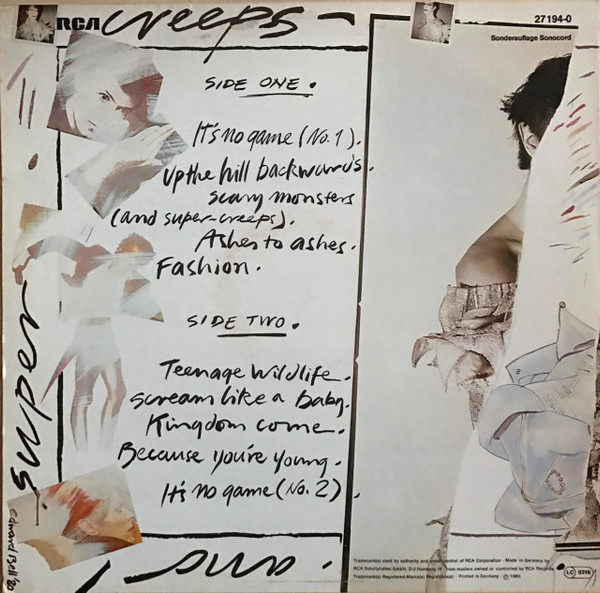 RCA creeps
27194-0
Sonderauflage Sonocord
SIDE ONE.
It's no game (No. 1).
Up the hill backwards.
scary monsters
(and super-creeps).
Ashes to ashes.
Fashion.
SIDE TWO.
Teenage Wildlife.
scream like a baby.
Kingdom come.
Because you're young.
It's no game (No. 2).
super
Edward Bell/80
Trademark(s) used by authority and under control of RCA Corporation · Made in Germany by
RCA Schallplatten GmbH, D-2 Hamburg, from masters owned or controlled by RCA Records.
Trademark(s) Registered-Marca(s) Registrada(s) · Printed in Germany · Ⓟ 1980
LC 0316